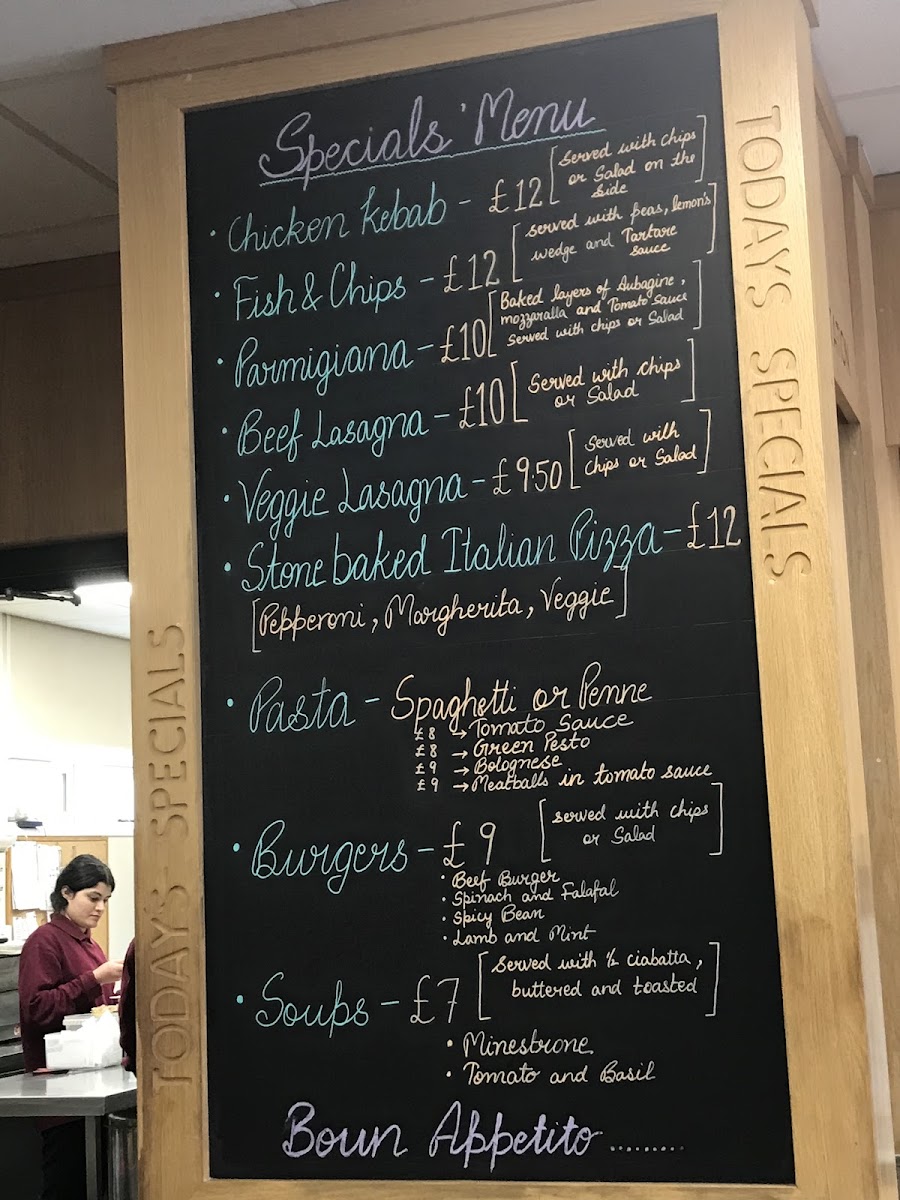 Specials' Menu
• Chicken Kebab - £12 [served with chips
or Salad on the
side]
• Fish & Chips - £12 [served with peas, lemon's
wedge and Tartare
sauce]
• Parmigiana - £10 [Baked layers of Aubagine,
mozzaralla and Tomato sauce
served with chips or Salad]
• Beef Lasagna - £10 [Served with chips
or Salad]
• Veggie Lasagna - £9.50 [Served with
chips or Salad]
• Stone baked Italian Pizza - £12
[Pepperoni, Margherita, Veggie]
• Pasta - Spaghetti or Penne
£8 → Tomato Sauce
£8 → Green Pesto
£9 → Bolognese
£9 → Meatballs in tomato sauce
• Burgers - £9 [served with chips
or Salad]
• Beef Burger
• Spinach and Falafal
• Spicy Bean
• Lamb and Mint
• Soups - £7 [Served with ½ ciabatta,
buttered and toasted]
• Minestrone
• Tomato and Basil
Boun Appetito .........
TODAYS SPECIALS
TODAYS SPECIALS